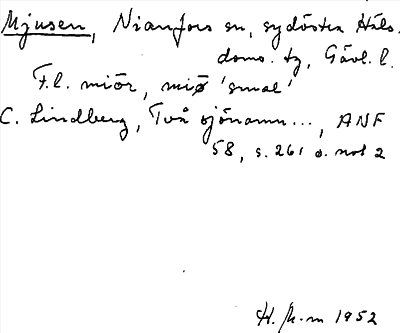 Mjusen, Nianfors sn, sydöstra Häls.
doms. tg, Gävl. l.
F.l. miör, miø 'smal'
C. Lindberg, Två sjönamn..., ANF
58, s. 261 o. not 2
1952